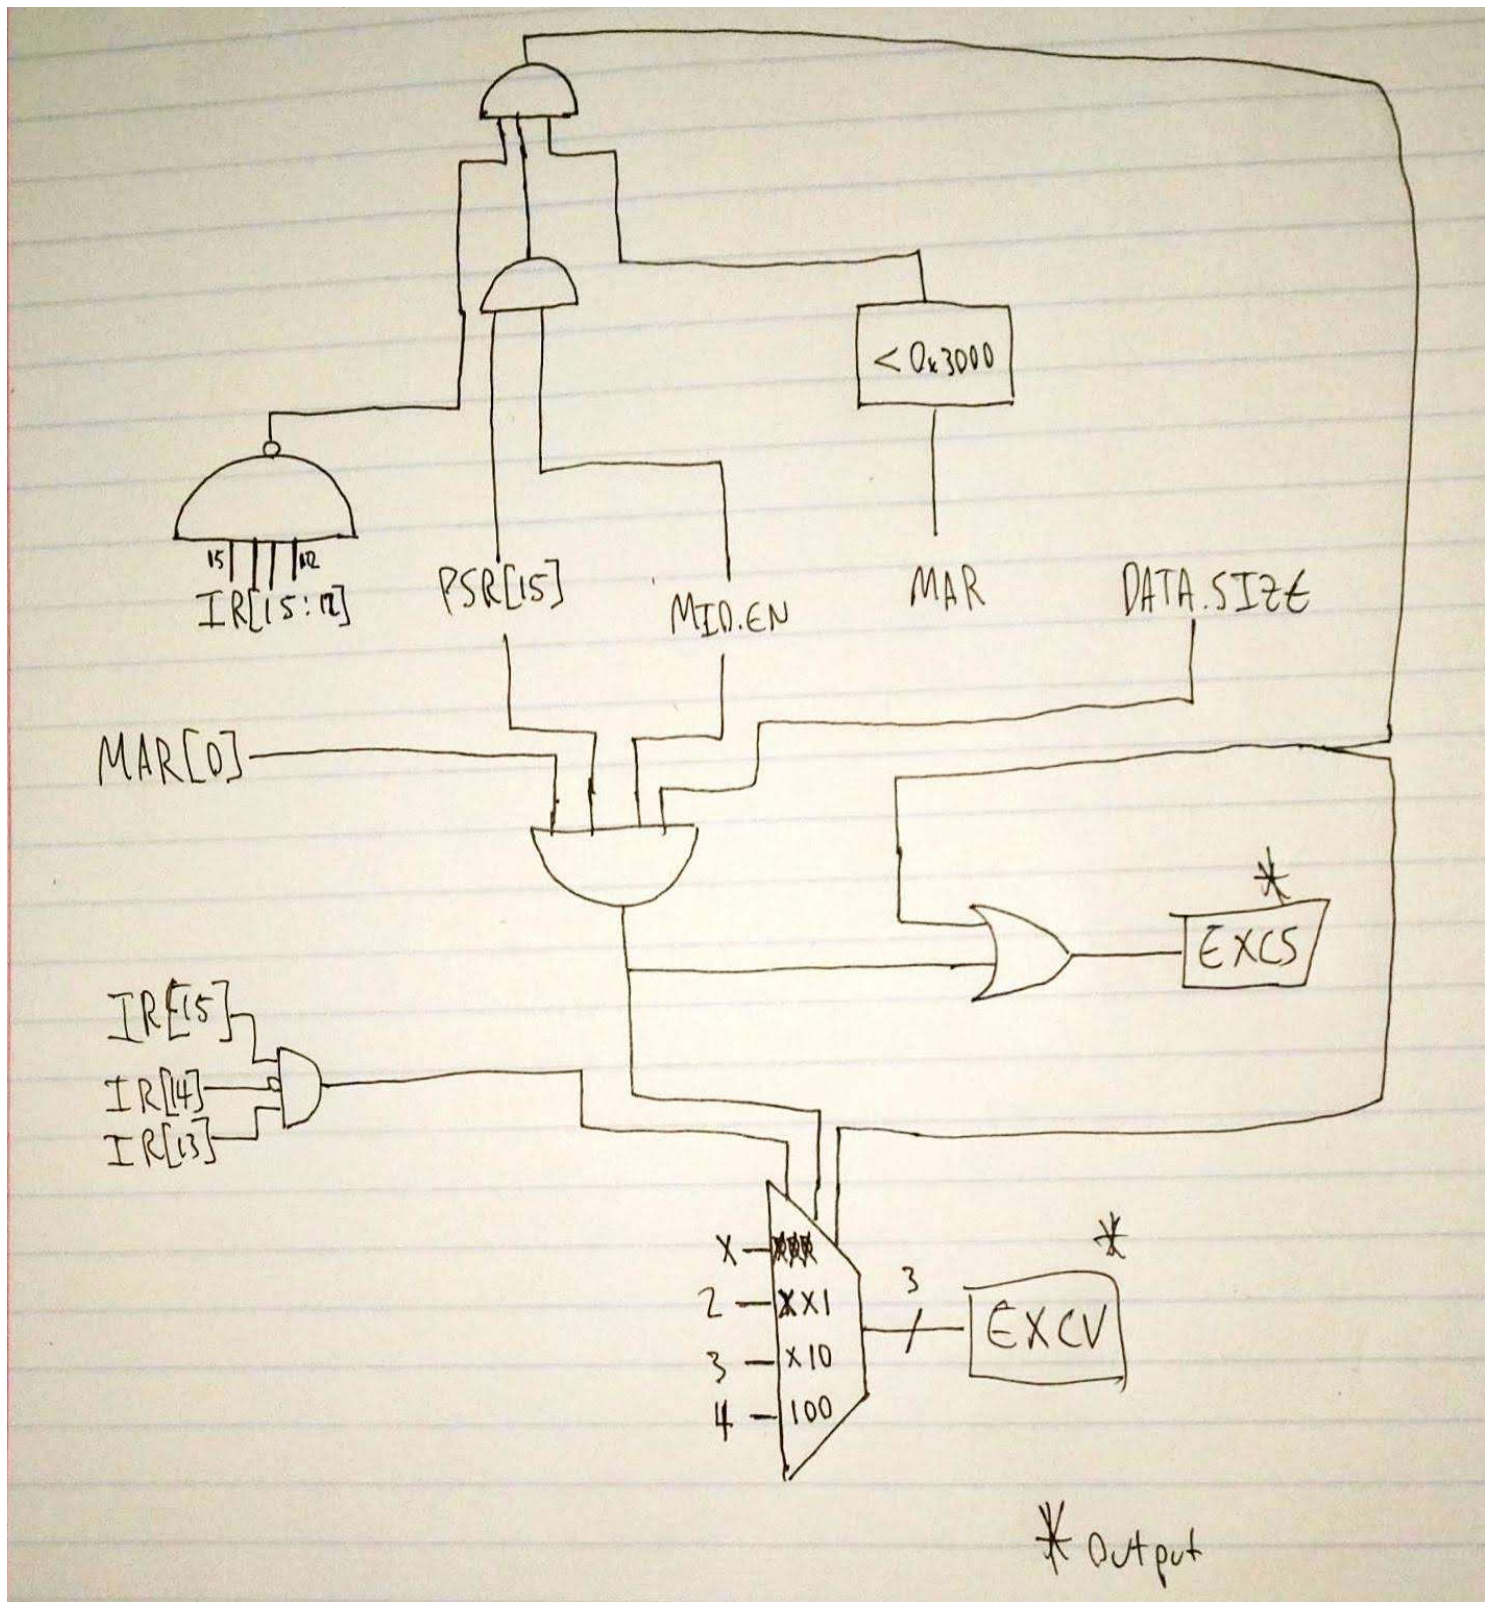 < 0x3000
15 12
IR[15:12]
PSR[15]
MIO.EN
MAR
DATA.SIZE
MAR[0]
*
EXCS
IR[15]
IR[14]
IR[13]
X
2 XX1
3 X10
4 100
3
*
EXCV
* Output